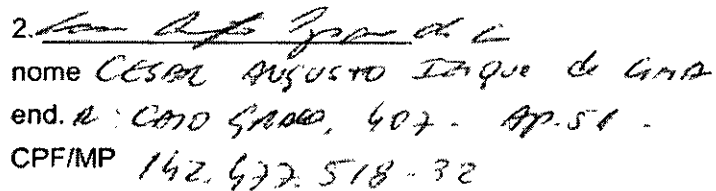 2.
nome CESAR AUGUSTO de LIMA
end. R: CAIO GRACO, 407 - AP. 51 -
CPF/MP 142.477.518-32